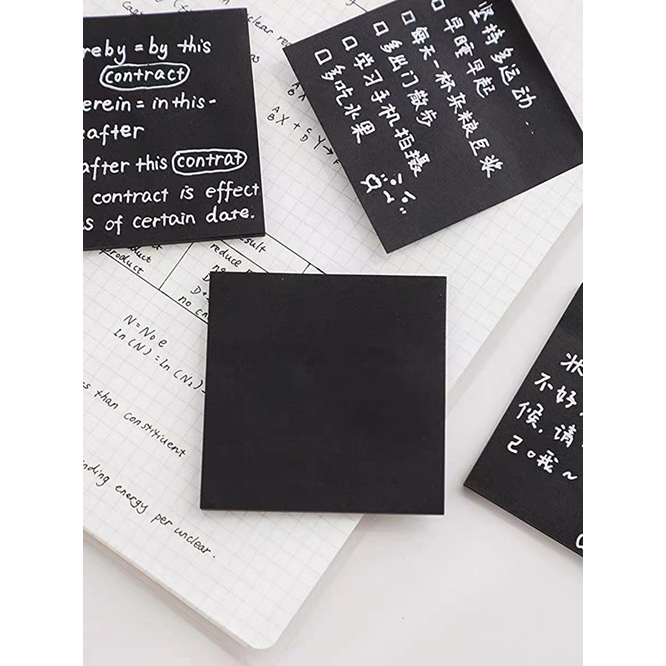 reby = by this
contract
erein = in this -
after
after this contrat
contract is effect
s of certain date.
坚持多运动...
□ 早睡早起
□ 每天一杯杂粮豆浆
□ 多出门散步
□ 学习手机拍摄
□ 多吃水果
clear rea
A B X + C D Y →
sult
reduce
product
no
D+
no
N = N₀ e
ln (N) = ln (N₂) -
s than constituent
nding energy per unclear.
状
不好,
候,请
己。我~